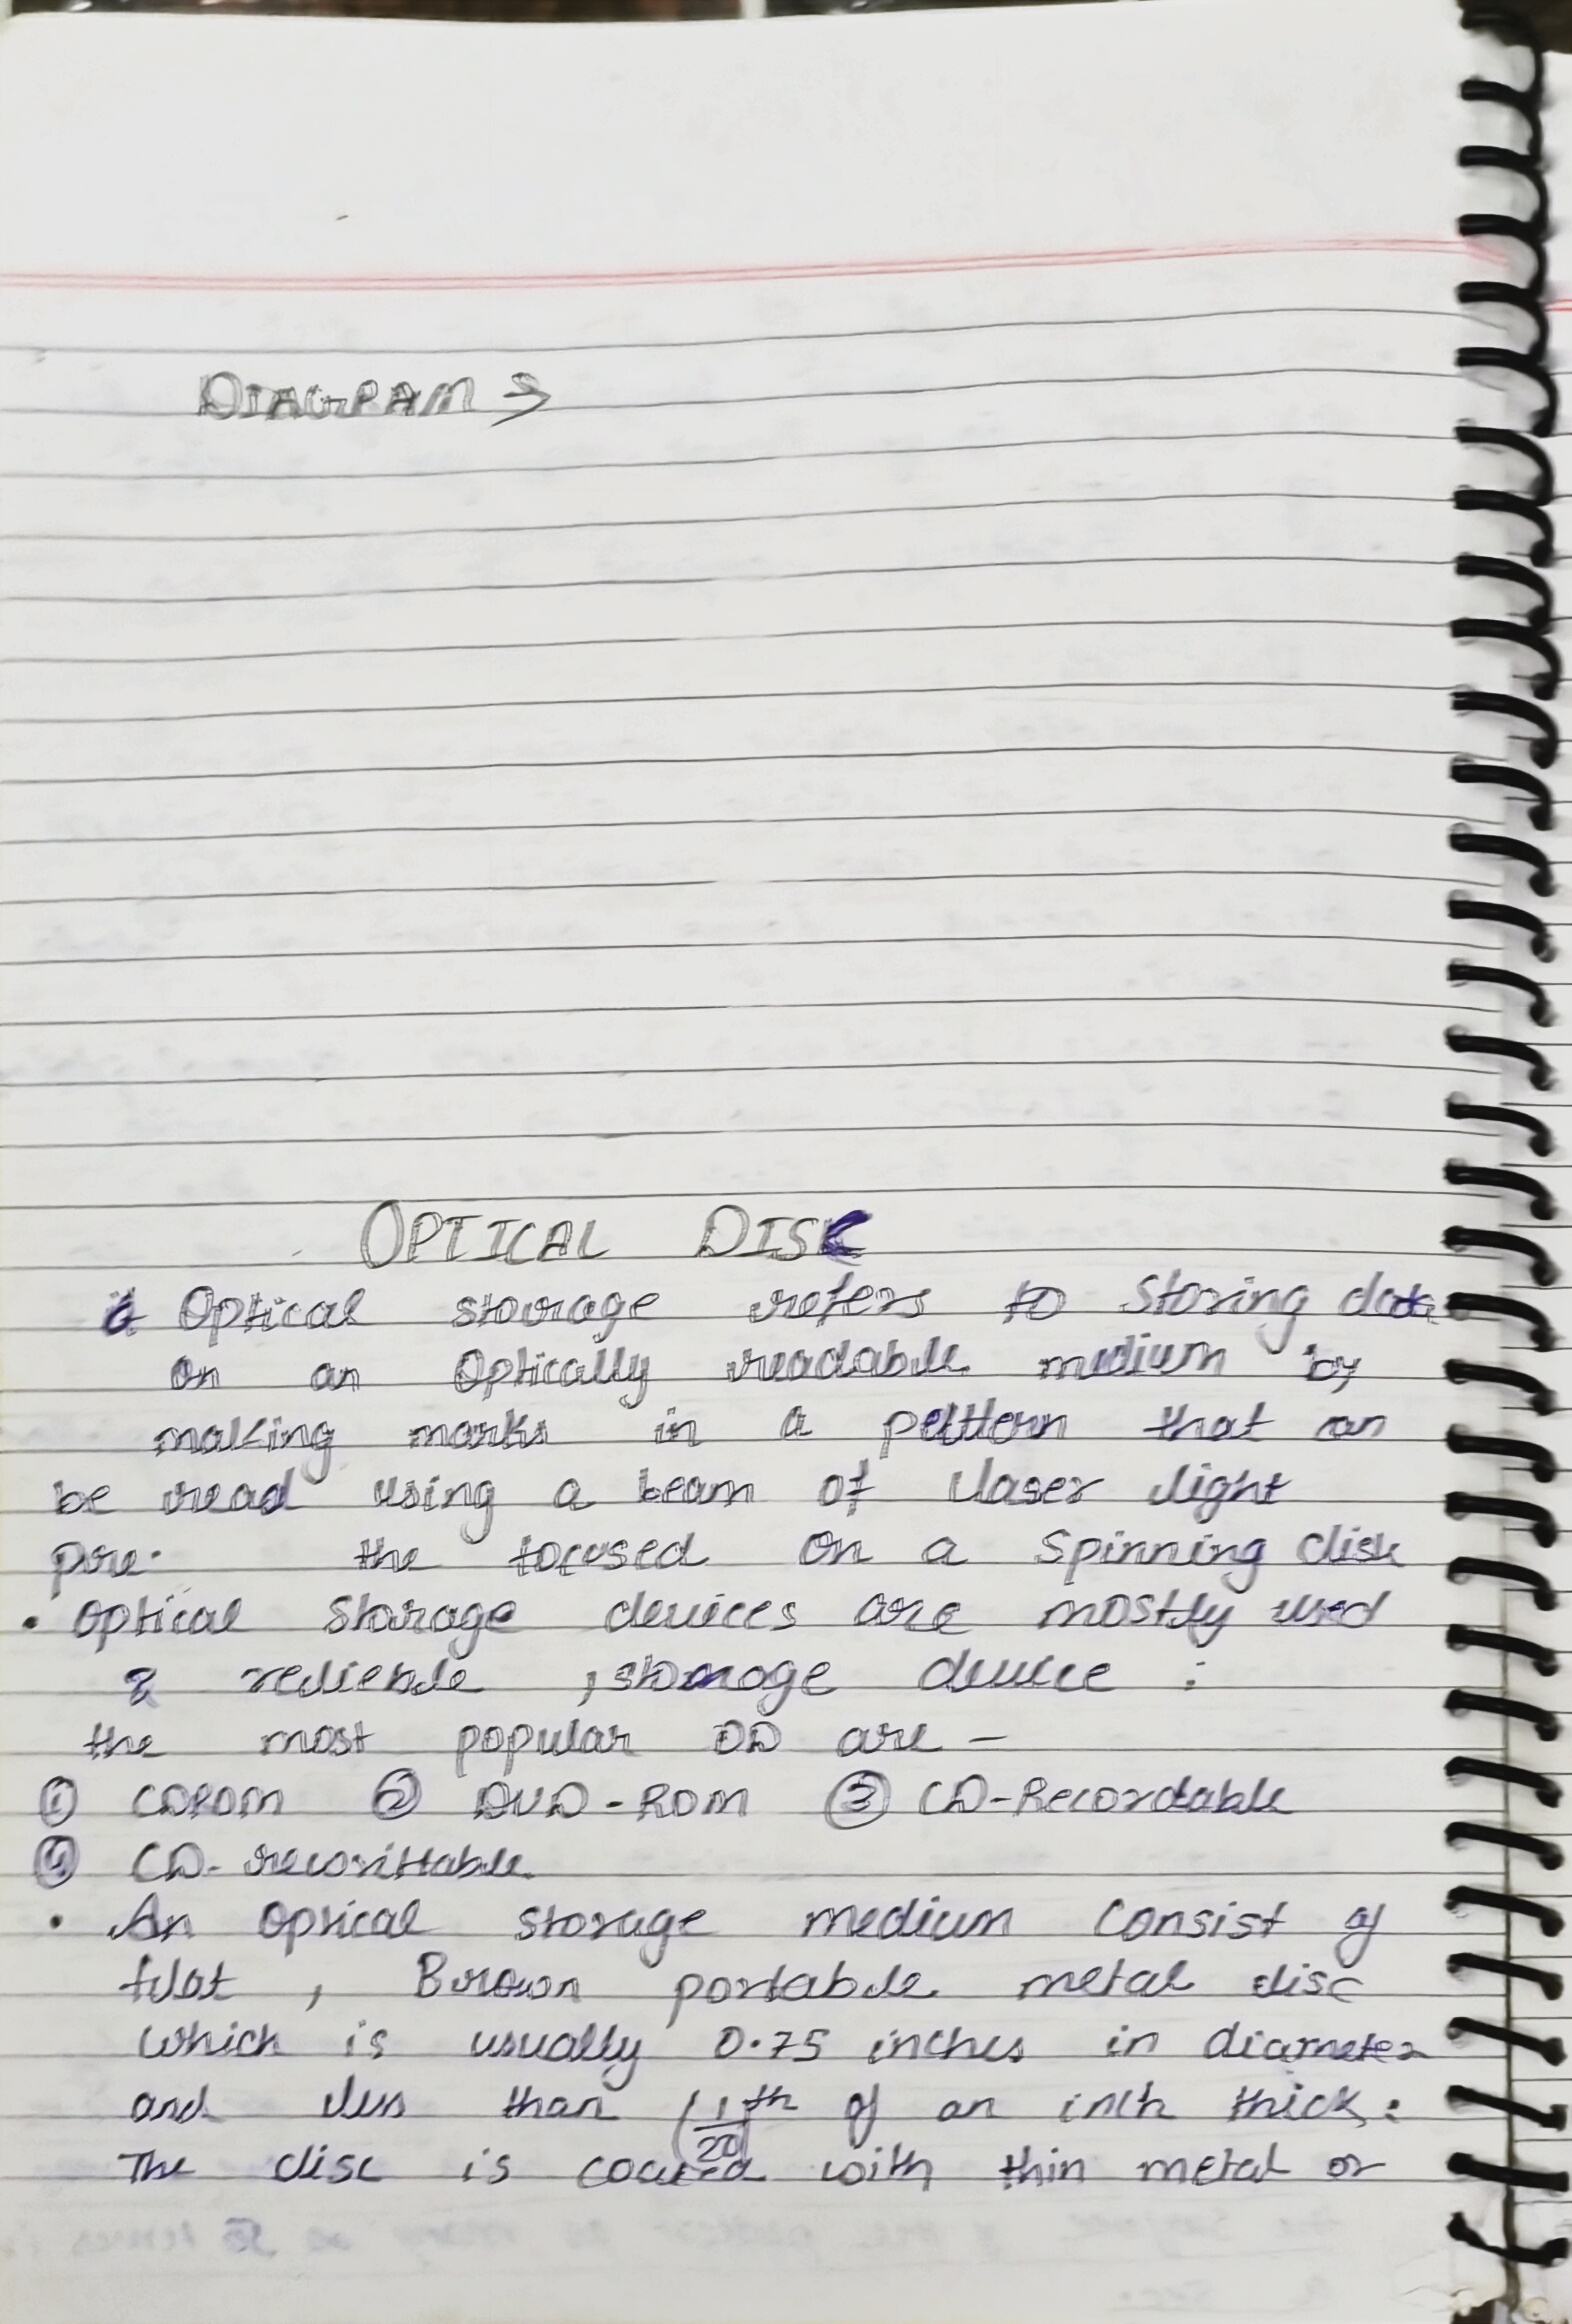 DIAGRAM →
OPTICAL DISK
Optical storage refers to Storing data
on an Optically readable medium by
making marks in a pattern that can
be read using a beam of laser light
pre. the focused on a Spinning disk
• Optical Storage devices are mostly used
& relieble , storage device :
the most popular OD are -
① CDROM ② DVD-ROM ③ CD-Recordable
④ CD-rewrittable
• An Optical storage medium Consist of
flat , Brown portable metal disc
which is usually 0.75 inches in diameter
and less than (1/20)th of an inch thick.
The disc is coated with thin metal or